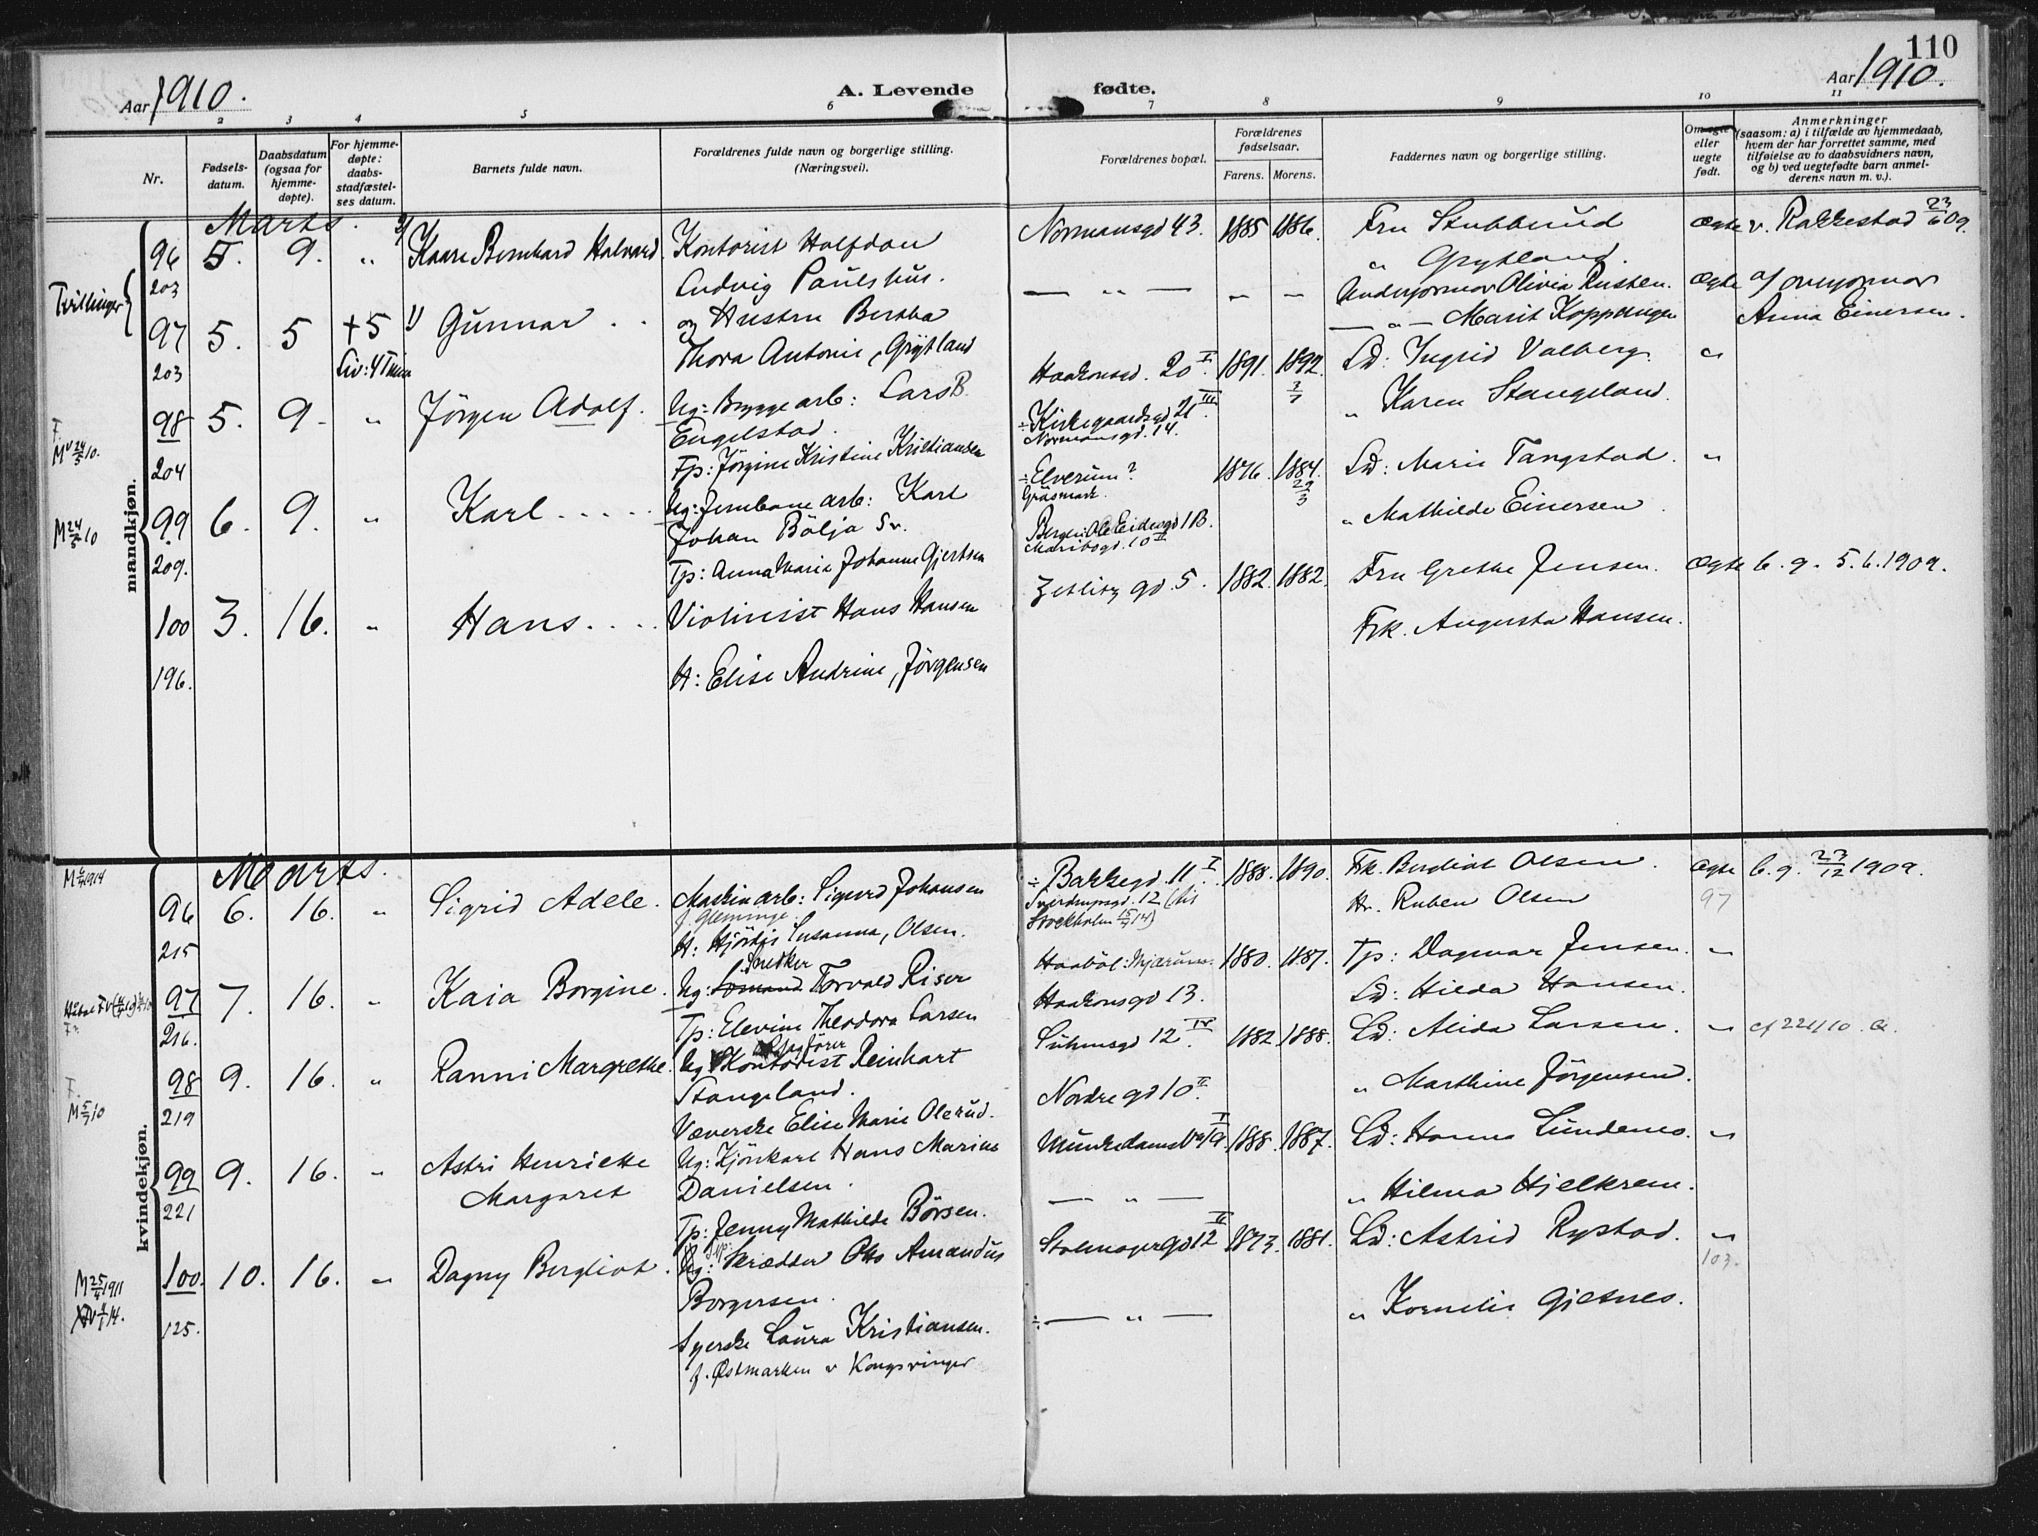 110
Aar 1910.
A. Levende fødte.
Aar 1910.
2 3 4 5 6 7 8 9 10 11
Nr.
Fødsels-
datum.
Daabsdatum
(ogsaa for
hjemme-
døpte).
For hjemme-
døpte:
daabs-
stadfæstel-
ses datum.
Barnets fulde navn.
Forældrenes fulde navn og borgerlige stilling.
(Næringsvei).
Forældrenes bopæl.
Forældrenes
fødselsaar.
Farens. Morens.
Faddernes navn og borgerlige stilling.
Om egte
eller
uegte
født.
Anmerkninger
(saasom: a) i tilfælde av hjemmedaab,
hvem der har forrettet samme, med
tilføielse av to daabsvidners navn,
og b) ved uegtefødte barn anmel-
derens navn m. v.).
mandkjøn.
Marts.
Tvillinger
96 5. 9. „ 2) Kaare Bernhard Halvard.
203
Kontorist Halfdan
Ludvig Paulshus.
og Hustru Bertha
Thora Antonie, Grytland
Normansgd 43. 1885 1886.
Fru Stubberud
„ Grytland.
Ægte v. Rakkestad 23/6 09.
97 5. 5 +5 1) Gunnar . .
203
Liv: 4 Tim
— „ — — —
Underjormor Olivia Rusten.
— „ — Marit Koppangen
Ægte af overjormor
Anna Einersen.
98 5. 9. „ Jörgen Adolf.
204
M 24/5 10.
Ug: Bryggearb: Lars B.
Engelstad.
Tp: Jörgine Kristine Kristiansen
Haakonsgd. 20 1891. 1892.
÷Kirkegaardsgd 21 III.
Normansgd. 14.
Ld: Ingrid Valberg.
„ Karen Stangeland.
„
99 6. 9. „ Karl . . . . .
209.
M 24/5 10
Ug: Jernbanearb: Karl
Johan Bölja Sv.
Tp: Anna Maria Johanne Gjertsen
÷Elverum?
Gräsmark.
1876. 1884.
29/3
Maribogd. 10 II
Ld: Marie Tangstad. „
„ Mathilde Einersen.
100 3. 16. „ Hans. . . .
196.
Violinist Hans Hansen
H: Elise Andrine, Jörgensen
Zetlitz gd. 5. 1882. 1882.
Fru Grethe Jensen.
Frk. Augusta Hansen.
Ægte b. g. 5.6.1909.
kvindekjøn.
Marts.
96 6. 16. „ Sigrid Adele.
215
Maskinarb: Sigurd Johansen
f. Glemminge.
H: Hjördis Susanna, Olsen.
÷Bakkegd. 11 I. 1888. 1890.
Sverdrupsgd. 12
Stockholm 15/4 14)
Frk. Bergliot Olsen.
Hr. Ruben Olsen
Ægte b. g. 23/12 1909.
97
97 7. 16. „ Kaia Borgine.
216.
Snedker
Ug: Sömand Torvald Riser
Tp: Elevine Theodora Larsen
Haaböl: Skjærum. 1880. 1887.
Haakonsgd 13.
Tp: Dagmar Jensen. „
Ld: Hilda Hansen.
98 9. 16. „ Ranni Margrethe.
219
M 5/7 10
Ug Kontorist Reinhart
Stangeland.
Væverske Elise Marie Olerud.
Suhmsgd 12 IV. 1882. 1888.
Nordregd 10 II.
Ld: Alida Larsen. „
„ Marthine Jörgensen.
99 9. 16. „ Astri Henriette
Margaret
221
Ug: Kjörekarl Hans Marine
Danielsen.
Tp: Jenny Mathilde Börsen.
Munkedamsv 19. 1888. 1887.
— „ —
Ld: Hanna Lundemo. „
„ Hilma Hjelkrem.
100. 10. 16. „ Dagny Bergliot.
125.
M 25/4 1911
Ug: Skrædder Otto Amandus
Borgersen.
Syerske Laura Kristiansen.
f. Østmarken v Kongsvinger
Stolmagergd 12 II 1873. 1881.
÷— „ —
Ld: Astrid Rystad. „
„ Kornelie Gjesnes.
103.